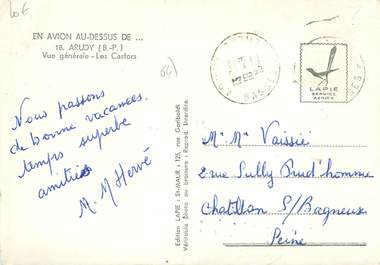 10€
EN AVION AU-DESSUS DE ...
18. ARUDY (B.-P.)
Vue générale - Les Castors
64)
LAPIE
SERVICE
AÉRIEN
Nous passons
de bonne vacances.
temps superbe
amitiés
M. M Hervé
Edition LAPIE : St-MAUR : 125, rue Garibaldi
Véritable photo au bromure : Reprod. interdite.
M. Me Vaissié
2 rue Sully Prud'homme
Chatillon S/Bagneux
Seine